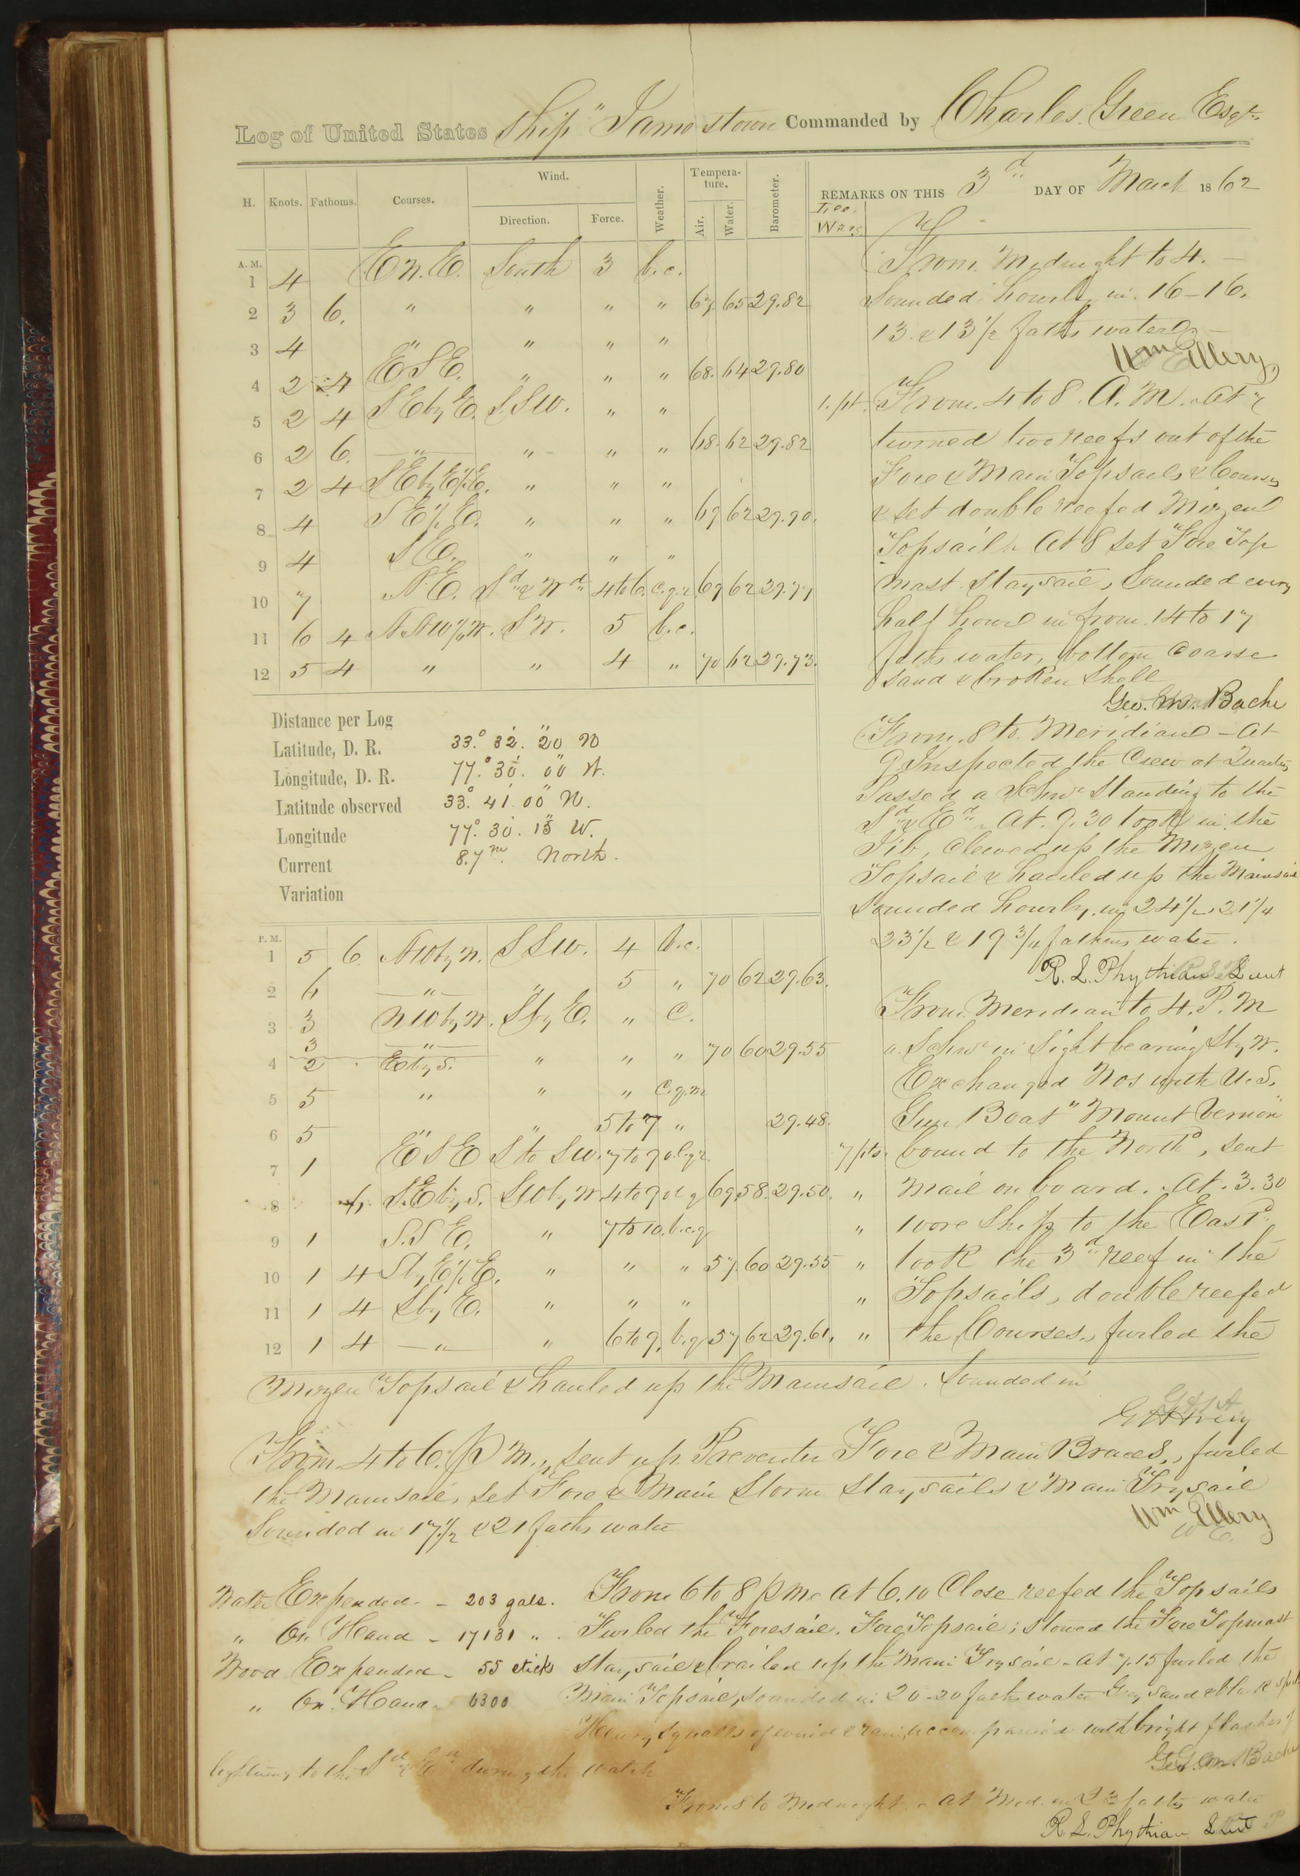 Log of United States Ship "Jamestown" Commanded by Charles Green Esqr.
H. Knots. Fathoms. Courses. Wind. Direction. Force. Weather. Tempera-ture. Air. Water. Barometer. REMARKS ON THIS 3d DAY OF March 1862
A. M.
1 4 E N. E. South 3 b.c.
2 3 6. " " " " 67 65 29.82
3 4 " " " "
4 2 4 E S E. " " " 68. 64 29.80
5 2 4 S E by E. S.S.W. " " 1. pt.
6 2 6. " " " " 68. 62 29.82
7 2 4 S E by E ½ E. " " "
8 4 S E ½ E. " " " 69 62 29.90.
9 4 S E. " " "
10 7 N. E. Sd & Wd 4 to 6. c.q.r. 69 62 29.77
11 6 4 N N W ½ W. S W. 5 b.c.
12 5 4 " " 4 " 70 62 29.73.
From Midnight to 4. –
Sounded hourly in 16 – 16.
13. & 13 ½ faths water –
Wm Ellery
From 4 to 8. A. M. At 7
turned two reefs out of the
Fore & Main Topsails & Courses
& set double reefed Mizen
Topsail. At 8 set Fore Top
mast Staysail, Sounded every
half hour in from 14 to 17
faths water, bottom coarse
sand & broken shell
Geo. M. Bache
From 8 to Meridian – At
9 Inspected the Crew at Quarters
Passed a Schnr Standing to the
Sd & Ed. At 9.30 took in the
Jib, Clewed up the Mizen
Topsail & hauled up the Mainsail
Sounded hourly in 24 ½, 21 ¼
23 ½ & 19 ¾ fathoms water.
R. L. Phythian Lieut
Distance per Log
Latitude, D. R. 33.° 32'. 20" N
Longitude, D. R. 77.° 30'. 00" W.
Latitude observed 33.° 41'. 00" N.
Longitude 77.° 30'. 15" W.
Current 8.7 m. North.
Variation
P. M.
1 5 6. N W by N. S S W. 4 b.c.
2 6 " " 5 " 70 62 29.63.
3 3 N W by W. S by E. " C.
4 3 2 " E by S. " " " 70 60 29.55
5 5 " " " c.q.m
6 5 " 5 to 7 " 29.48.
7 1 E S E S to S W. 7 to 9 7 pts.
8 6. S. E by S. S W by W 4 to 9 69. 58. 29.50. "
9 1 S. S E. " 7 to 10. b.c.q "
10 1 4 S by E ½ E. " " " 57. 60 29.55 "
11 1 4 S by E. " " " "
12 1 4 " " 6 to 9, b.q 57 62 29.61. "
From Meridian to 4. P. M
a Schnr in sight bearing S by W.
Exchanged Nos with U. S.
Gun Boat "Mount Vernon"
bound to the Northd, sent
mail on board. At. 3.30
wore Ship to the Eastd
took the 3d reef in the
Topsails, double reefed
the Courses, furled the
Mizen Topsail & hauled up the Mainsail. Sounded in
From 4 to 6. P. M., sent up Preventer Fore & Main Braces, furled
the Mainsail, set Fore & Main Storm Staysails & Main Trysail
Sounded in 17 ½ & 21 faths water
Wm Ellery
W E.
Water Expended – 203 gals. From 6 to 8 p m. At 6.10 Close reefed the Topsails
" On Hand – 17131 ". Furled the Foresail. Fore Topsail; Stowed the Fore Topmast
Wood Expended – 55 sticks Staysail & brailed up the Main Trysail. At 7.15 furled the
" On Hand – 6300 Main Topsail, sounded in 20–20 faths water Grey sand & black specks
Heavy squalls of wind & rain, accompanied with bright flashes of
lightning to the Sd & Ed during the Watch
Geo. M. Bache
From 8 to Midnight. At Mid. in faths water
R. L. Phythian Lieut